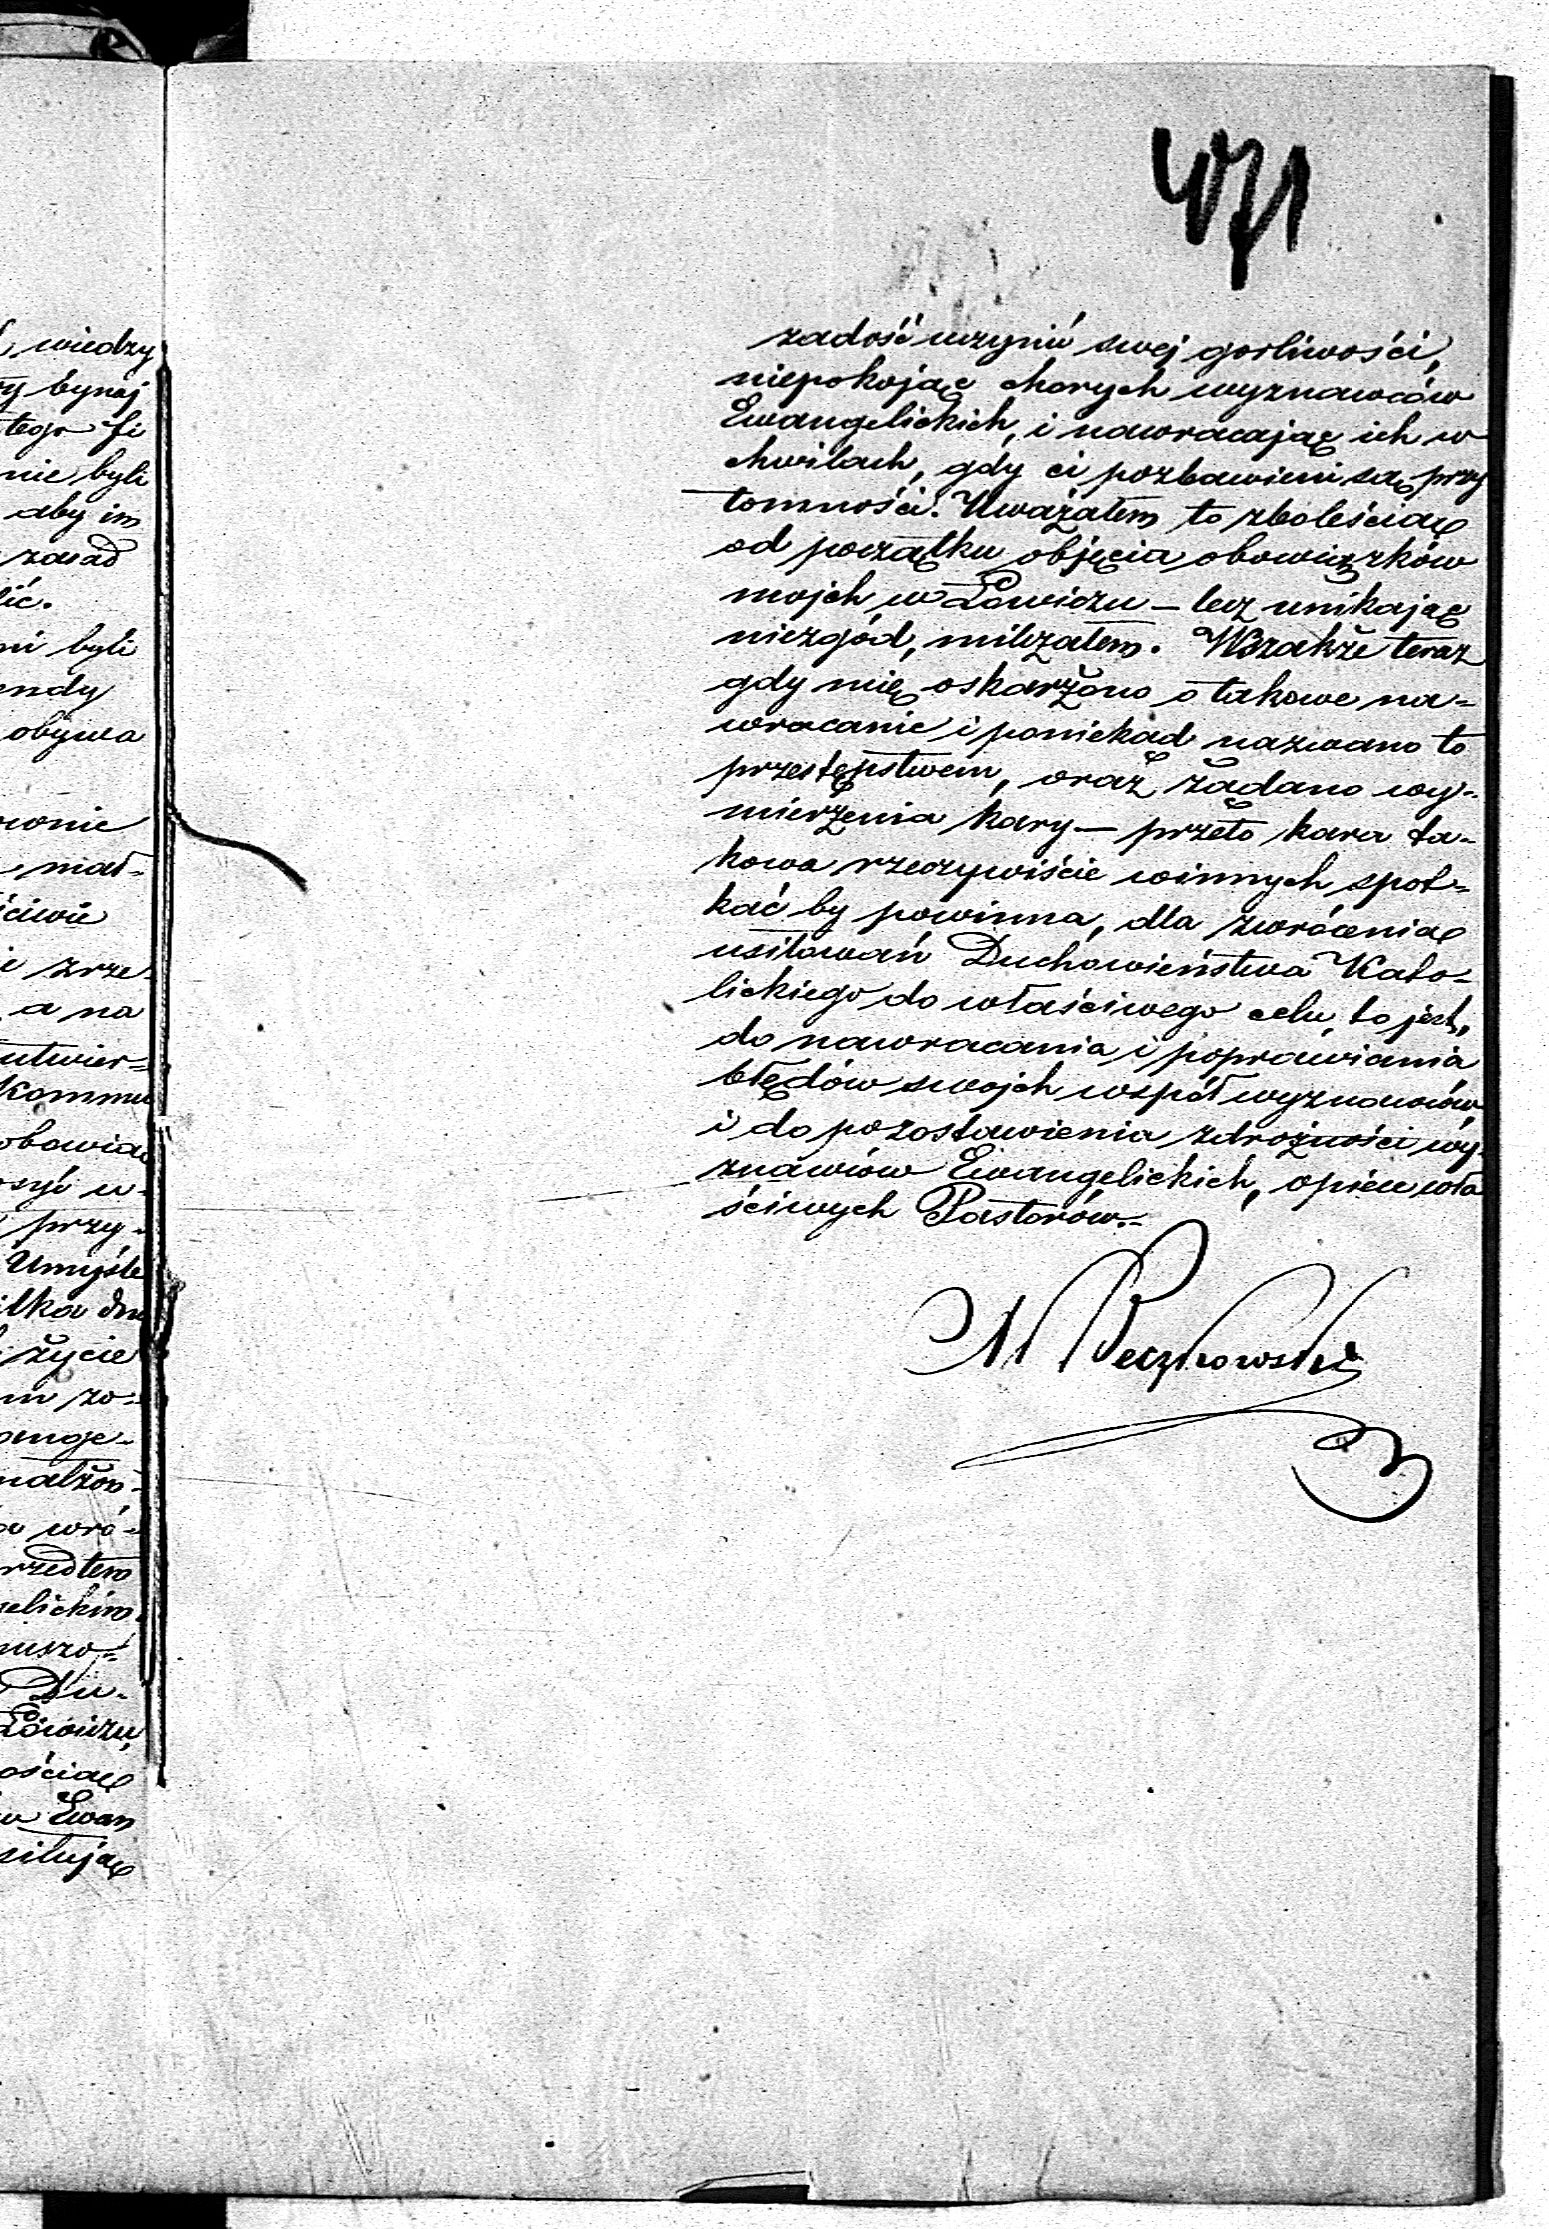 471
wiedzy
bynaj
tego fi
nie byli
aby im
zasad
lić.
ni byli
endy
obywa
ownie
mał-
ściwie
i zrze-
a na
utwier-
Kommu
obowią
osyć w-
przy-
Umyśle
ilka dn
życie
m zo-
ange-
małżoń-
wró-
rzedtem
gelickim
muszo-
Du-
Łowiczu,
ością
w Ewan
siłując
zadość uczynić swej gorliwości,
niepokojąc chorych wyznawców
Ewangelickich, i nawracając ich w
chwilach, gdy ci pozbawieni są przy
tomności. Uważałem to z boleścią
od początku objęcia obowiązków
mojch w Łowiczu — lecz unikając
niezgód, milczałem. Wszakże teraz
gdy mię oskarżono o takowe na-
wracanie i poniekąd nazwano to
przestępstwem, oraz żądano wy-
mierzenia kary — przeto kara ta-
kowa rzeczywiście winnych spot-
kać by powinna, dla zwrócenia
usiłowań Duchowieństwa Kato-
lickiego do właściwego celu, to jest,
do nawracania i poprawiania
błędów swojch współwyznawców
i do pozostawienia zdrożności wy-
znawców Ewangelickich, opiece wła
ściwych Pastorów.-